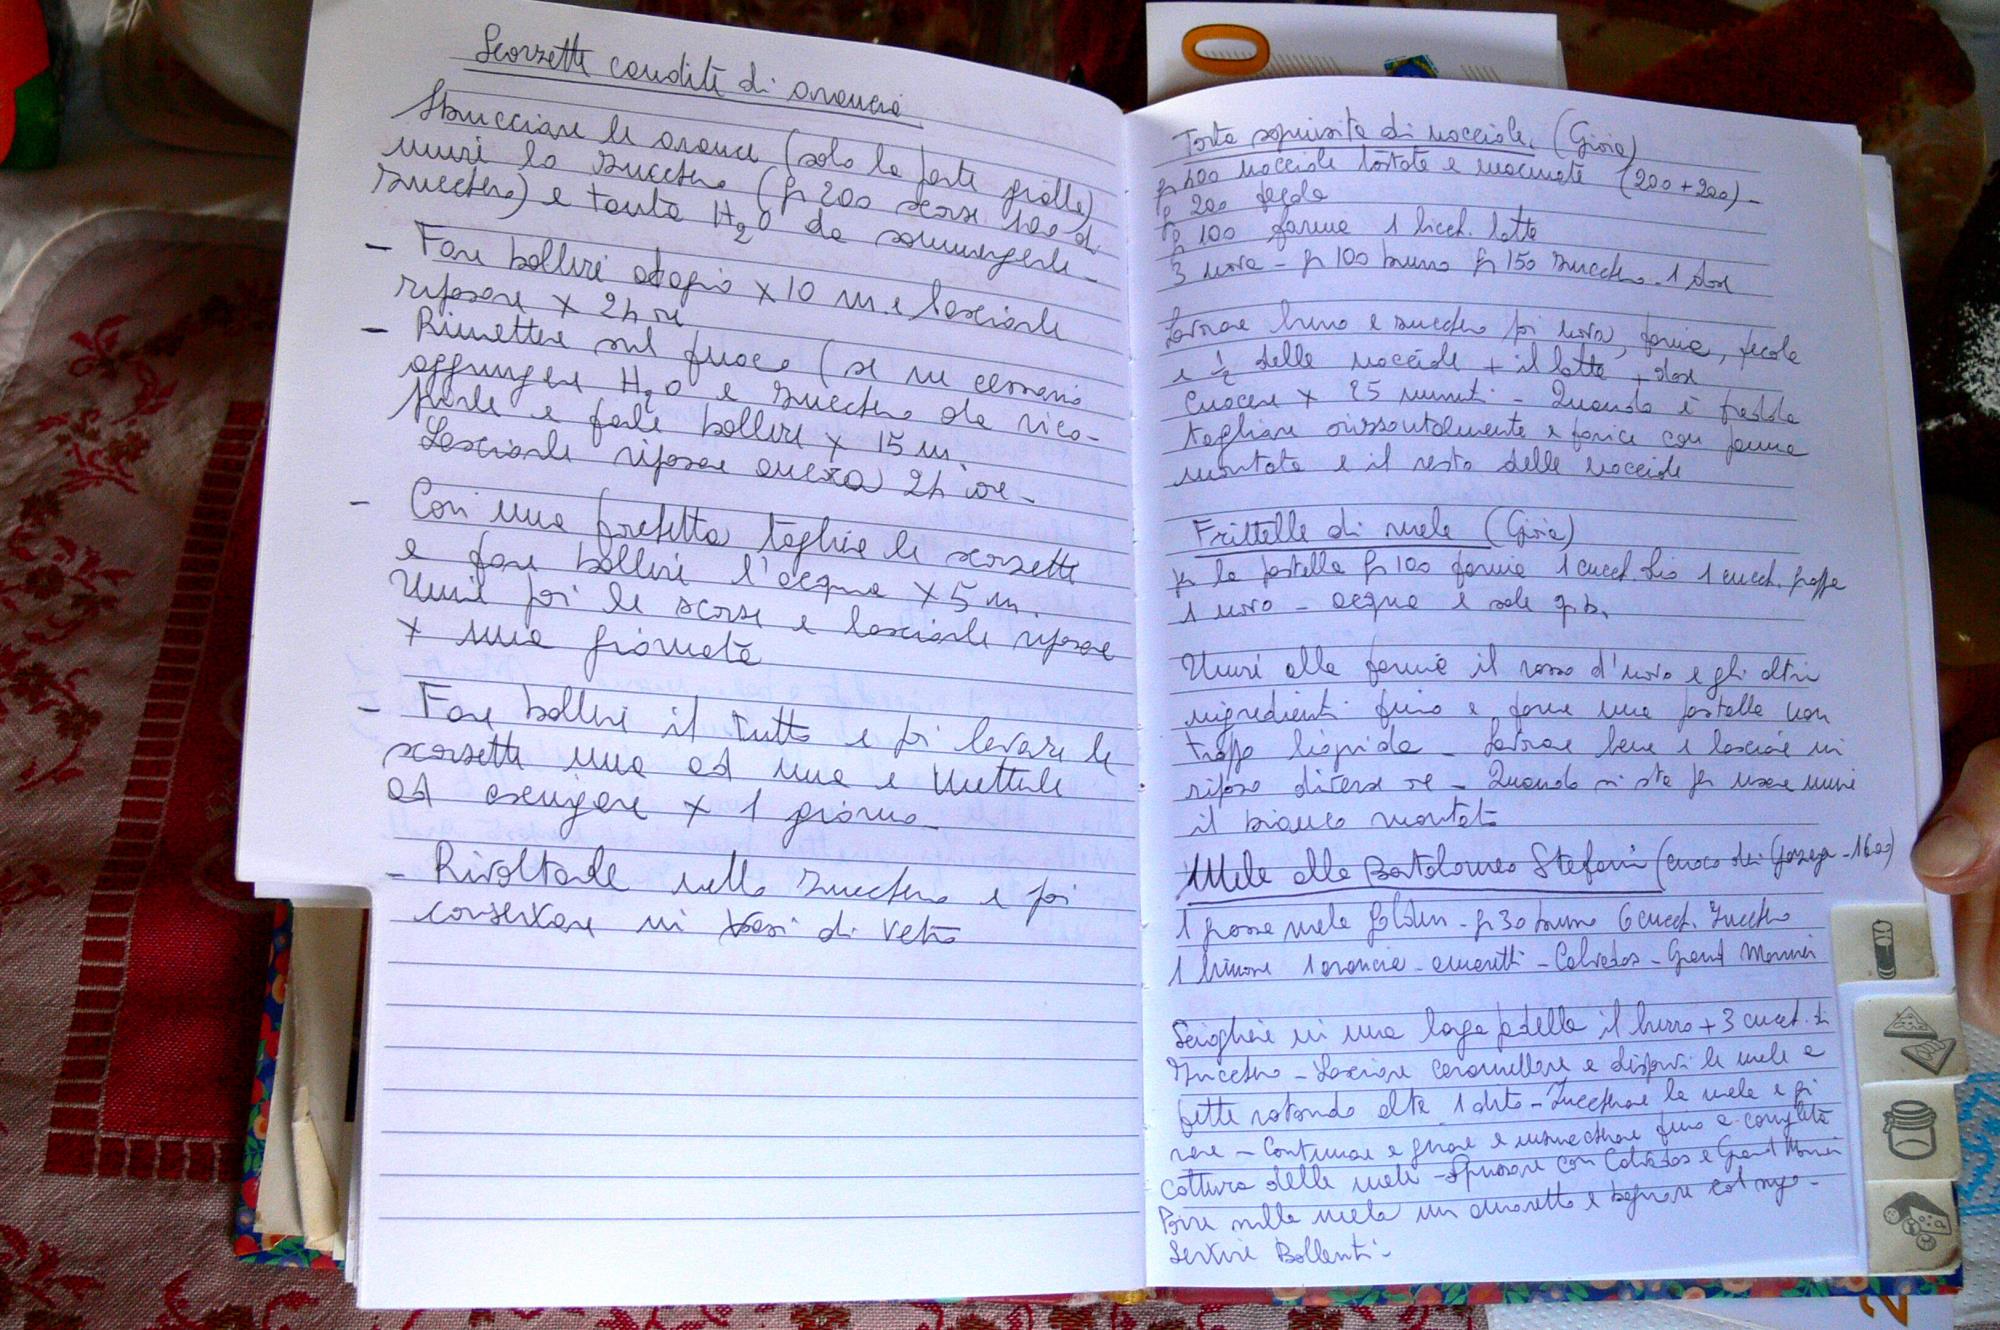 Scorzette candite di arancia
Sbucciare le arance (solo la parte gialla)
unire lo zucchero (gr 200 scorze 100 di
zucchero) e tanta H2O da sommergerle -
- Fare bollire adagio x 10 m e lasciarle
riposare x 24 h
- Rimettere sul fuoco (se necessario
aggiungere H2O e zucchero da rico-
prirle e farle bollire x 15 m.
Lasciarle riposare ancora 24 ore -
- Con una forbicetta tagliare le scorzette
e fare bollire l'acqua x 5 m.
Unire poi le scorze e lasciarle riposare
x una giornata
- Fare bollire il tutto e poi levare le
scorzette una ad una e metterle
ad asciugare x 1 giorno
- Rivoltarle nello zucchero e poi
conservare in vasi di vetro
Torta squisita di nocciole (Gioia)
gr 400 nocciole tostate e macinate (200+200) -
gr 200 fecola
gr 100 farina 1 bicch. latte
3 uova - gr 100 burro gr 150 zucchero - 1 dose
Lavorare burro e zucchero poi uova, farina, fecola
e 1/2 delle nocciole + il latte + dose
Cuocere x 25 minuti - Quando è fredda
tagliare orizzontalmente e farcire con panna
montata e il resto delle nocciole
Frittelle di mele (Gioia)
x la pastella gr 100 farina 1 cucch. olio 1 cucch. grappa
1 uovo - acqua e sale q.b.
Unire alla farina il rosso d'uovo e gli altri
ingredienti fino a farne una pastella non
troppo liquida - Lavorare bene e lasciare in
riposo diverse ore - Quando si sta per usare unire
il bianco montato
Mele alla Bartolomeo Stefani (cuoco dei Gonzaga - 1600)
1 grossa mela Golden - gr 30 burro 6 cucch. zucchero
1 limone 1 arancia - amaretti - Calvados - Grand Marnier
Sciogliere in una larga padella il burro + 3 cucch. di
zucchero - Lasciare caramellare e disporvi le mele a
fette rotonde alte 1 dito - Zuccherare le mele e gi
rare - Continuare a girare e inzuccherare fino a completa
cottura delle mele - Spruzzare con Calvados e Grand Marnier
Porre sulla mela un amaretto e bagnare col sugo -
Servire Bollenti -